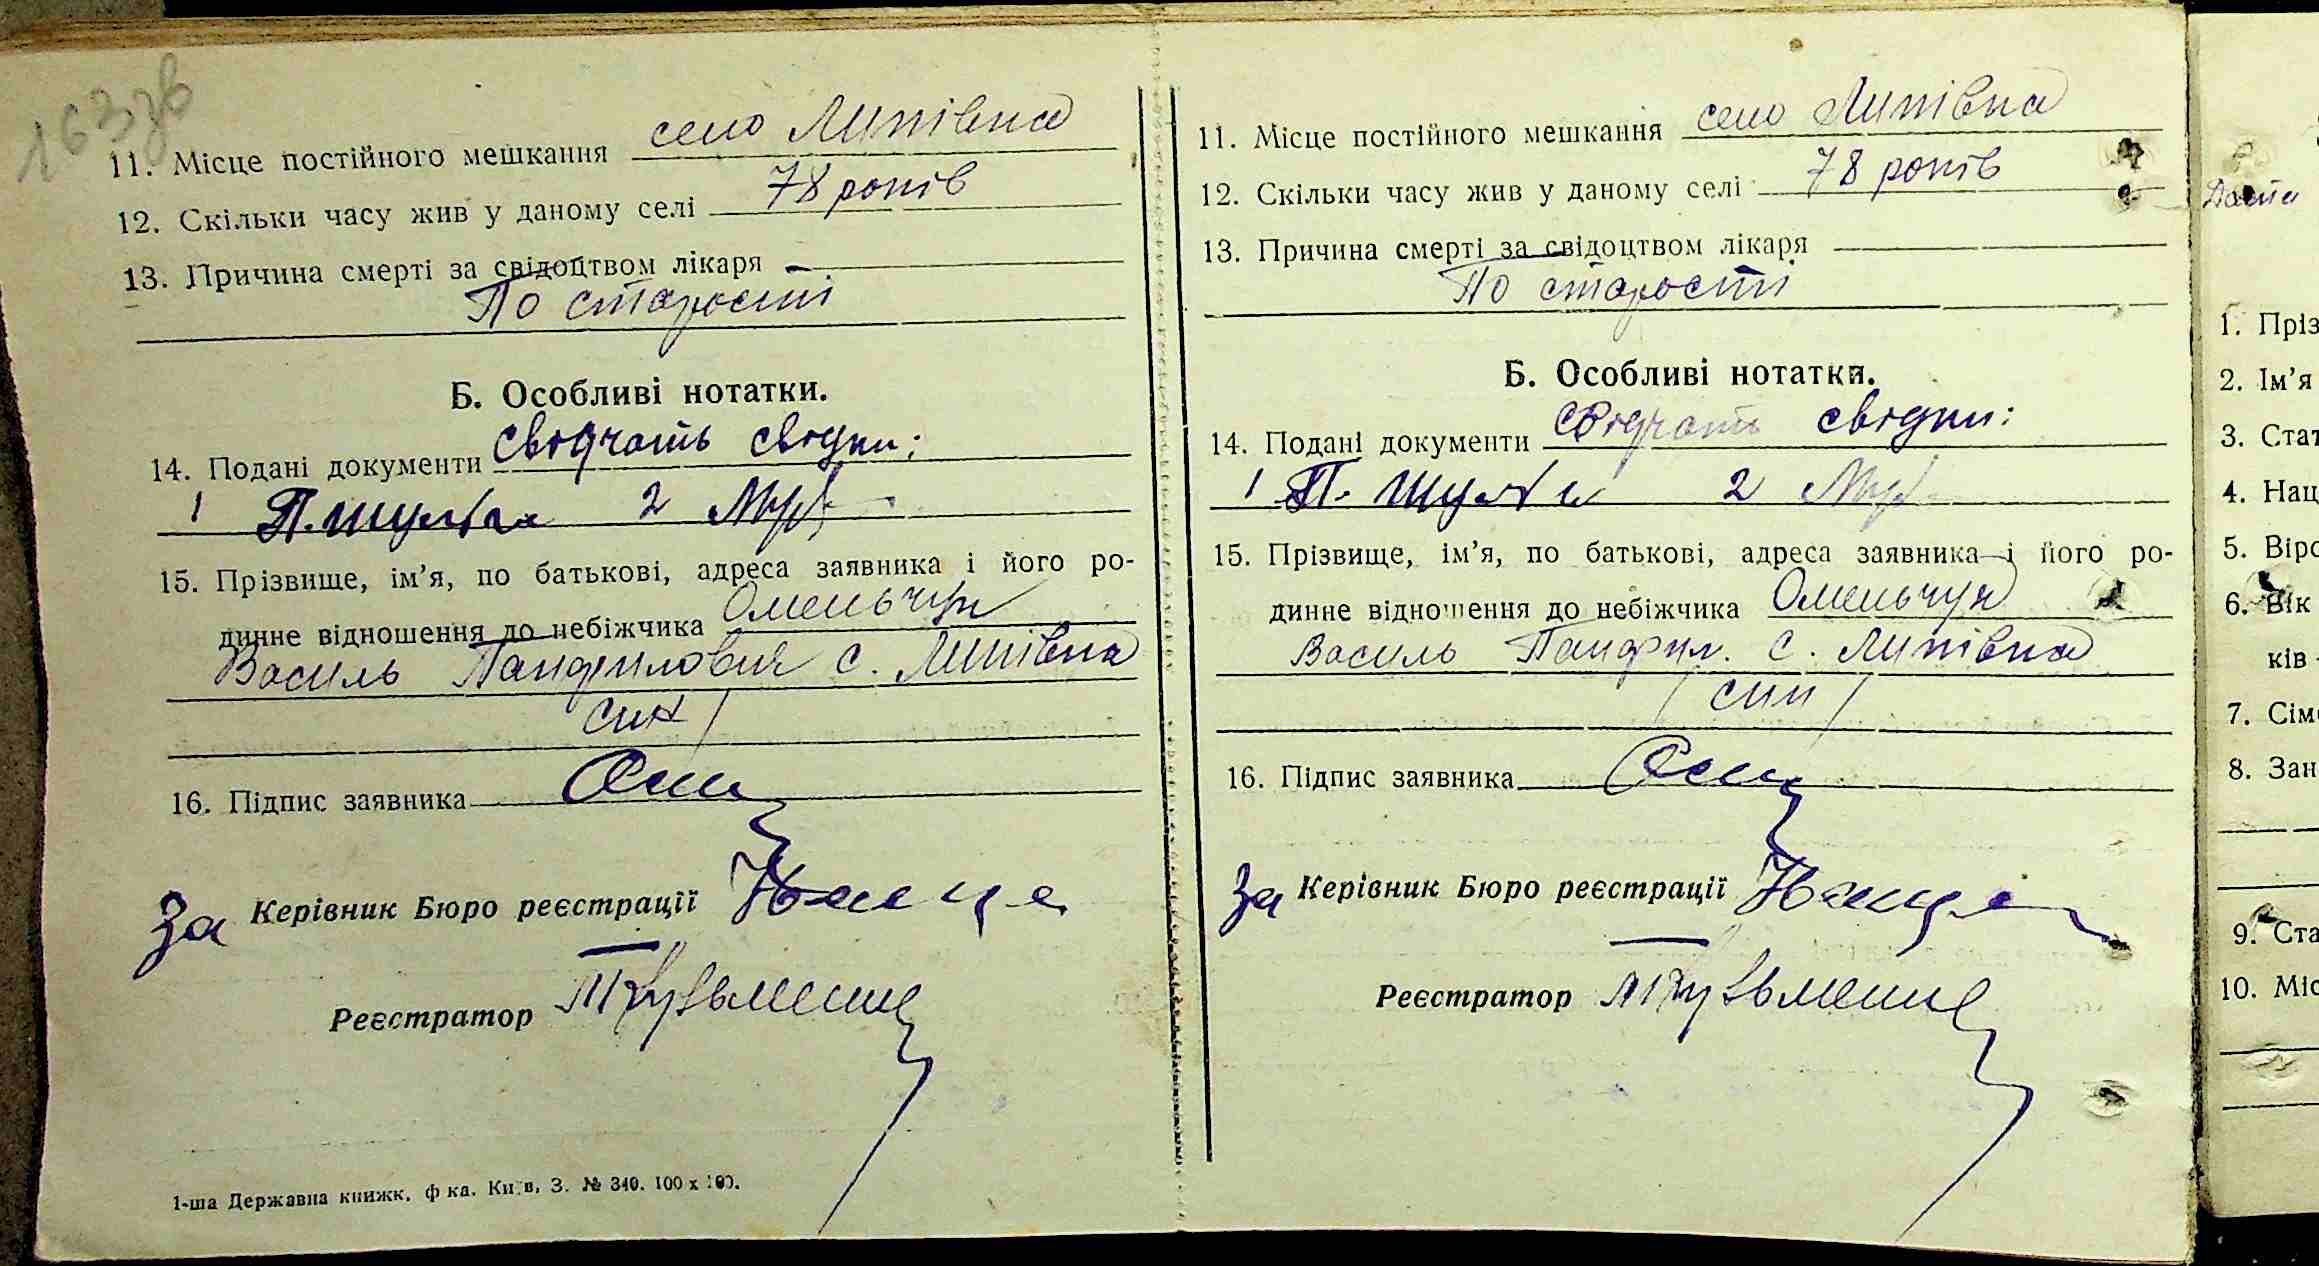 163 зв
11. Місце постійного мешкання село Липівка
12. Скільки часу жив у даному селі 78 років
13. Причина смерті за свідоцтвом лікаря —
По старості
Б. Особливі нотатки.
14. Подані документи Свідчать свідки:
1 П. Шульга 2
15. Прізвище, ім'я, по батькові, адреса заявника і його ро-
динне відношення до небіжчика Омельчук
Василь Панфилович с. Липівка
син /
16. Підпис заявника
За Керівник Бюро реєстрації
Реєстратор Кузьменко
1-ша Державна книжк. ф-ка. Київ, З. № 340. 100 х 100.
11. Місце постійного мешкання село Липівка
12. Скільки часу жив у даному селі 78 років
13. Причина смерті за свідоцтвом лікаря
По старості
Б. Особливі нотатки.
14. Подані документи Свідчать свідки:
1 П. Шульга 2
15. Прізвище, ім'я, по батькові, адреса заявника і його ро-
динне відношення до небіжчика Омельчук
Василь Панфил. с. Липівка
/ син /
16. Підпис заявника
За Керівник Бюро реєстрації
Реєстратор Кузьменко
1. Пріз
2. Ім'я
3. Стат
4. Нац
5. Віро
6. Вік
ків
7. Сім
8. Зан
9. Ста
10. Міс